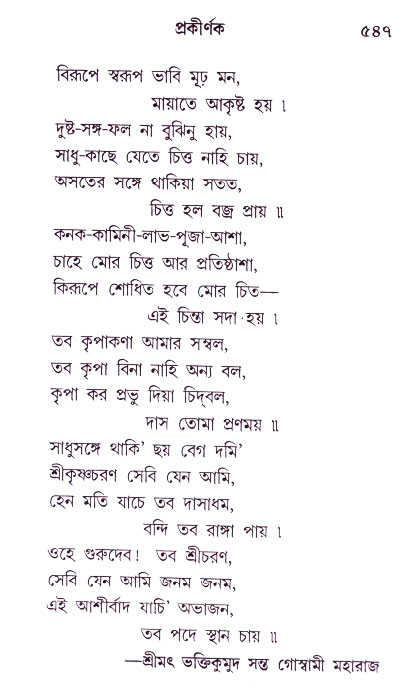 প্রকীর্ণক ৫৪৭
বিরূপে স্বরূপ ভাবি মূঢ় মন,
মায়াতে আকৃষ্ট হয় ।
দুষ্ট-সঙ্গ-ফল না বুঝিনু হায়,
সাধু-কাছে যেতে চিত্ত নাহি চায়,
অসতের সঙ্গে থাকিয়া সতত,
চিত্ত হল বজ্র প্রায় ॥
কনক-কামিনী-লাভ-পূজা-আশা,
চাহে মোর চিত্ত আর প্রতিষ্ঠাশা,
কিরূপে শোধিত হবে মোর চিত—
এই চিন্তা সদা হয় ।
তব কৃপাকণা আমার সম্বল,
তব কৃপা বিনা নাহি অন্য বল,
কৃপা কর প্রভু দিয়া চিদ্‌বল,
দাস তোমা প্রণময় ॥
সাধুসঙ্গে থাকি’ ছয় বেগ দমি’
শ্রীকৃষ্ণচরণ সেবি যেন আমি,
হেন মতি যাচে তব দাসাধম,
বন্দি তব রাঙ্গা পায় ।
ওহে গুরুদেব! তব শ্রীচরণ,
সেবি যেন আমি জনম জনম,
এই আশীর্বাদ যাচি’ অভাজন,
তব পদে স্থান চায় ॥
—শ্রীমৎ ভক্তিকুমুদ সন্ত গোস্বামী মহারাজ